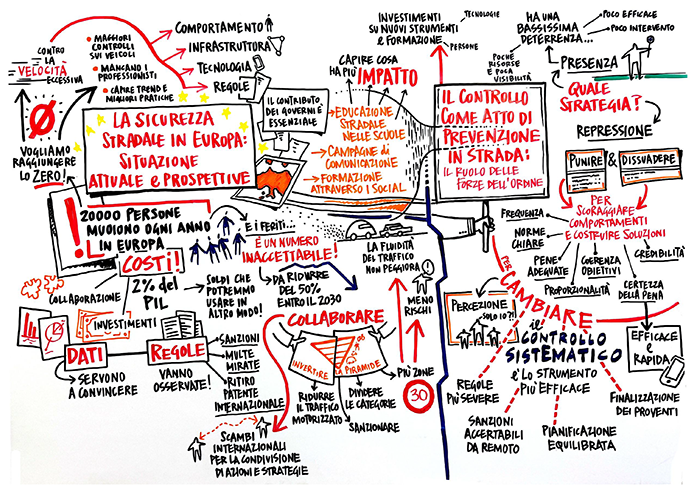 CONTRO
LA
VELOCITÀ
ECCESSIVA
• MAGGIORI
CONTROLLI
SUI VEICOLI
• MANCANO I
PROFESSIONISTI
• CAPIRE TREND E
MIGLIORI PRATICHE
COMPORTAMENTO
INFRASTRUTTURA
TECNOLOGIA
REGOLE
VOGLIAMO
RAGGIUNGERE
LO ZERO!
LA SICUREZZA
STRADALE IN EUROPA:
SITUAZIONE
ATTUALE e PROSPETTIVE
IL CONTRIBUTO
DEI GOVERNI È
ESSENZIALE
20000 PERSONE
MUOIONO OGNI ANNO
IN EUROPA
E I FERITI...
È UN NUMERO
INACCETTABILE!
DA RIDURRE
DEL 50%
ENTRO IL 2030
COSTI!
2% del
PIL
SOLDI CHE
POTREMMO
USARE IN
ALTRO MODO!
COLLABORAZIONE
INVESTIMENTI
DATI
SERVONO
A CONVINCERE
REGOLE
VANNO
OSSERVATE!
SANZIONI
MULTE
MIRATE
RITIRO
PATENTE
INTERNAZIONALE
SCAMBI
INTERNAZIONALI
PER LA CONDIVISIONE
DI AZIONI E STRATEGIE
COLLABORARE
INVERTIRE
LA PIRAMIDE
RIDURRE
IL TRAFFICO
MOTORIZZATO
DIVIDERE
LE CATEGORIE
SANZIONARE
PIÙ ZONE
30
MENO
RISCHI
LA FLUIDITÀ
DEL TRAFFICO
NON PEGGIORA
CAPIRE COSA
HA PIÙ IMPATTO
→ EDUCAZIONE
STRADALE
NELLE SCUOLE
→ CAMPAGNE di
COMUNICAZIONE
→ FORMAZIONE
ATTRAVERSO I SOCIAL
INVESTIMENTI
SU NUOVI STRUMENTI
e FORMAZIONE
TECNOLOGIE
PERSONE
IL CONTROLLO
COME ATTO DI
PREVENZIONE
IN STRADA:
IL RUOLO DELLE
FORZE DELL'ORDINE
HA UNA
BASSISSIMA
DETERRENZA...
POCO EFFICACE
POCO INTERVENTO
POCHE
RISORSE
E POCA
VISIBILITÀ
PRESENZA
QUALE
STRATEGIA?
REPRESSIONE
PUNIRE & DISSUADERE
PER
SCORAGGIARE
COMPORTAMENTI
E COSTRUIRE SOLUZIONI
FREQUENZA
NORME
CHIARE
PENE
ADEGUATE
PROPORZIONALITÀ
COERENZA
OBIETTIVI
CERTEZZA
DELLA PENA
CREDIBILITÀ
EFFICACE
E
RAPIDA
FINALIZZAZIONE
DEI PROVENTI
PERCEZIONE
SOLO IO?!
PER
CAMBIARE
il
CONTROLLO
SISTEMATICO
è LO STRUMENTO
PIÙ EFFICACE
REGOLE
PIÙ SEVERE
SANZIONI
ACCERTABILI
DA REMOTO
PIANIFICAZIONE
EQUILIBRATA